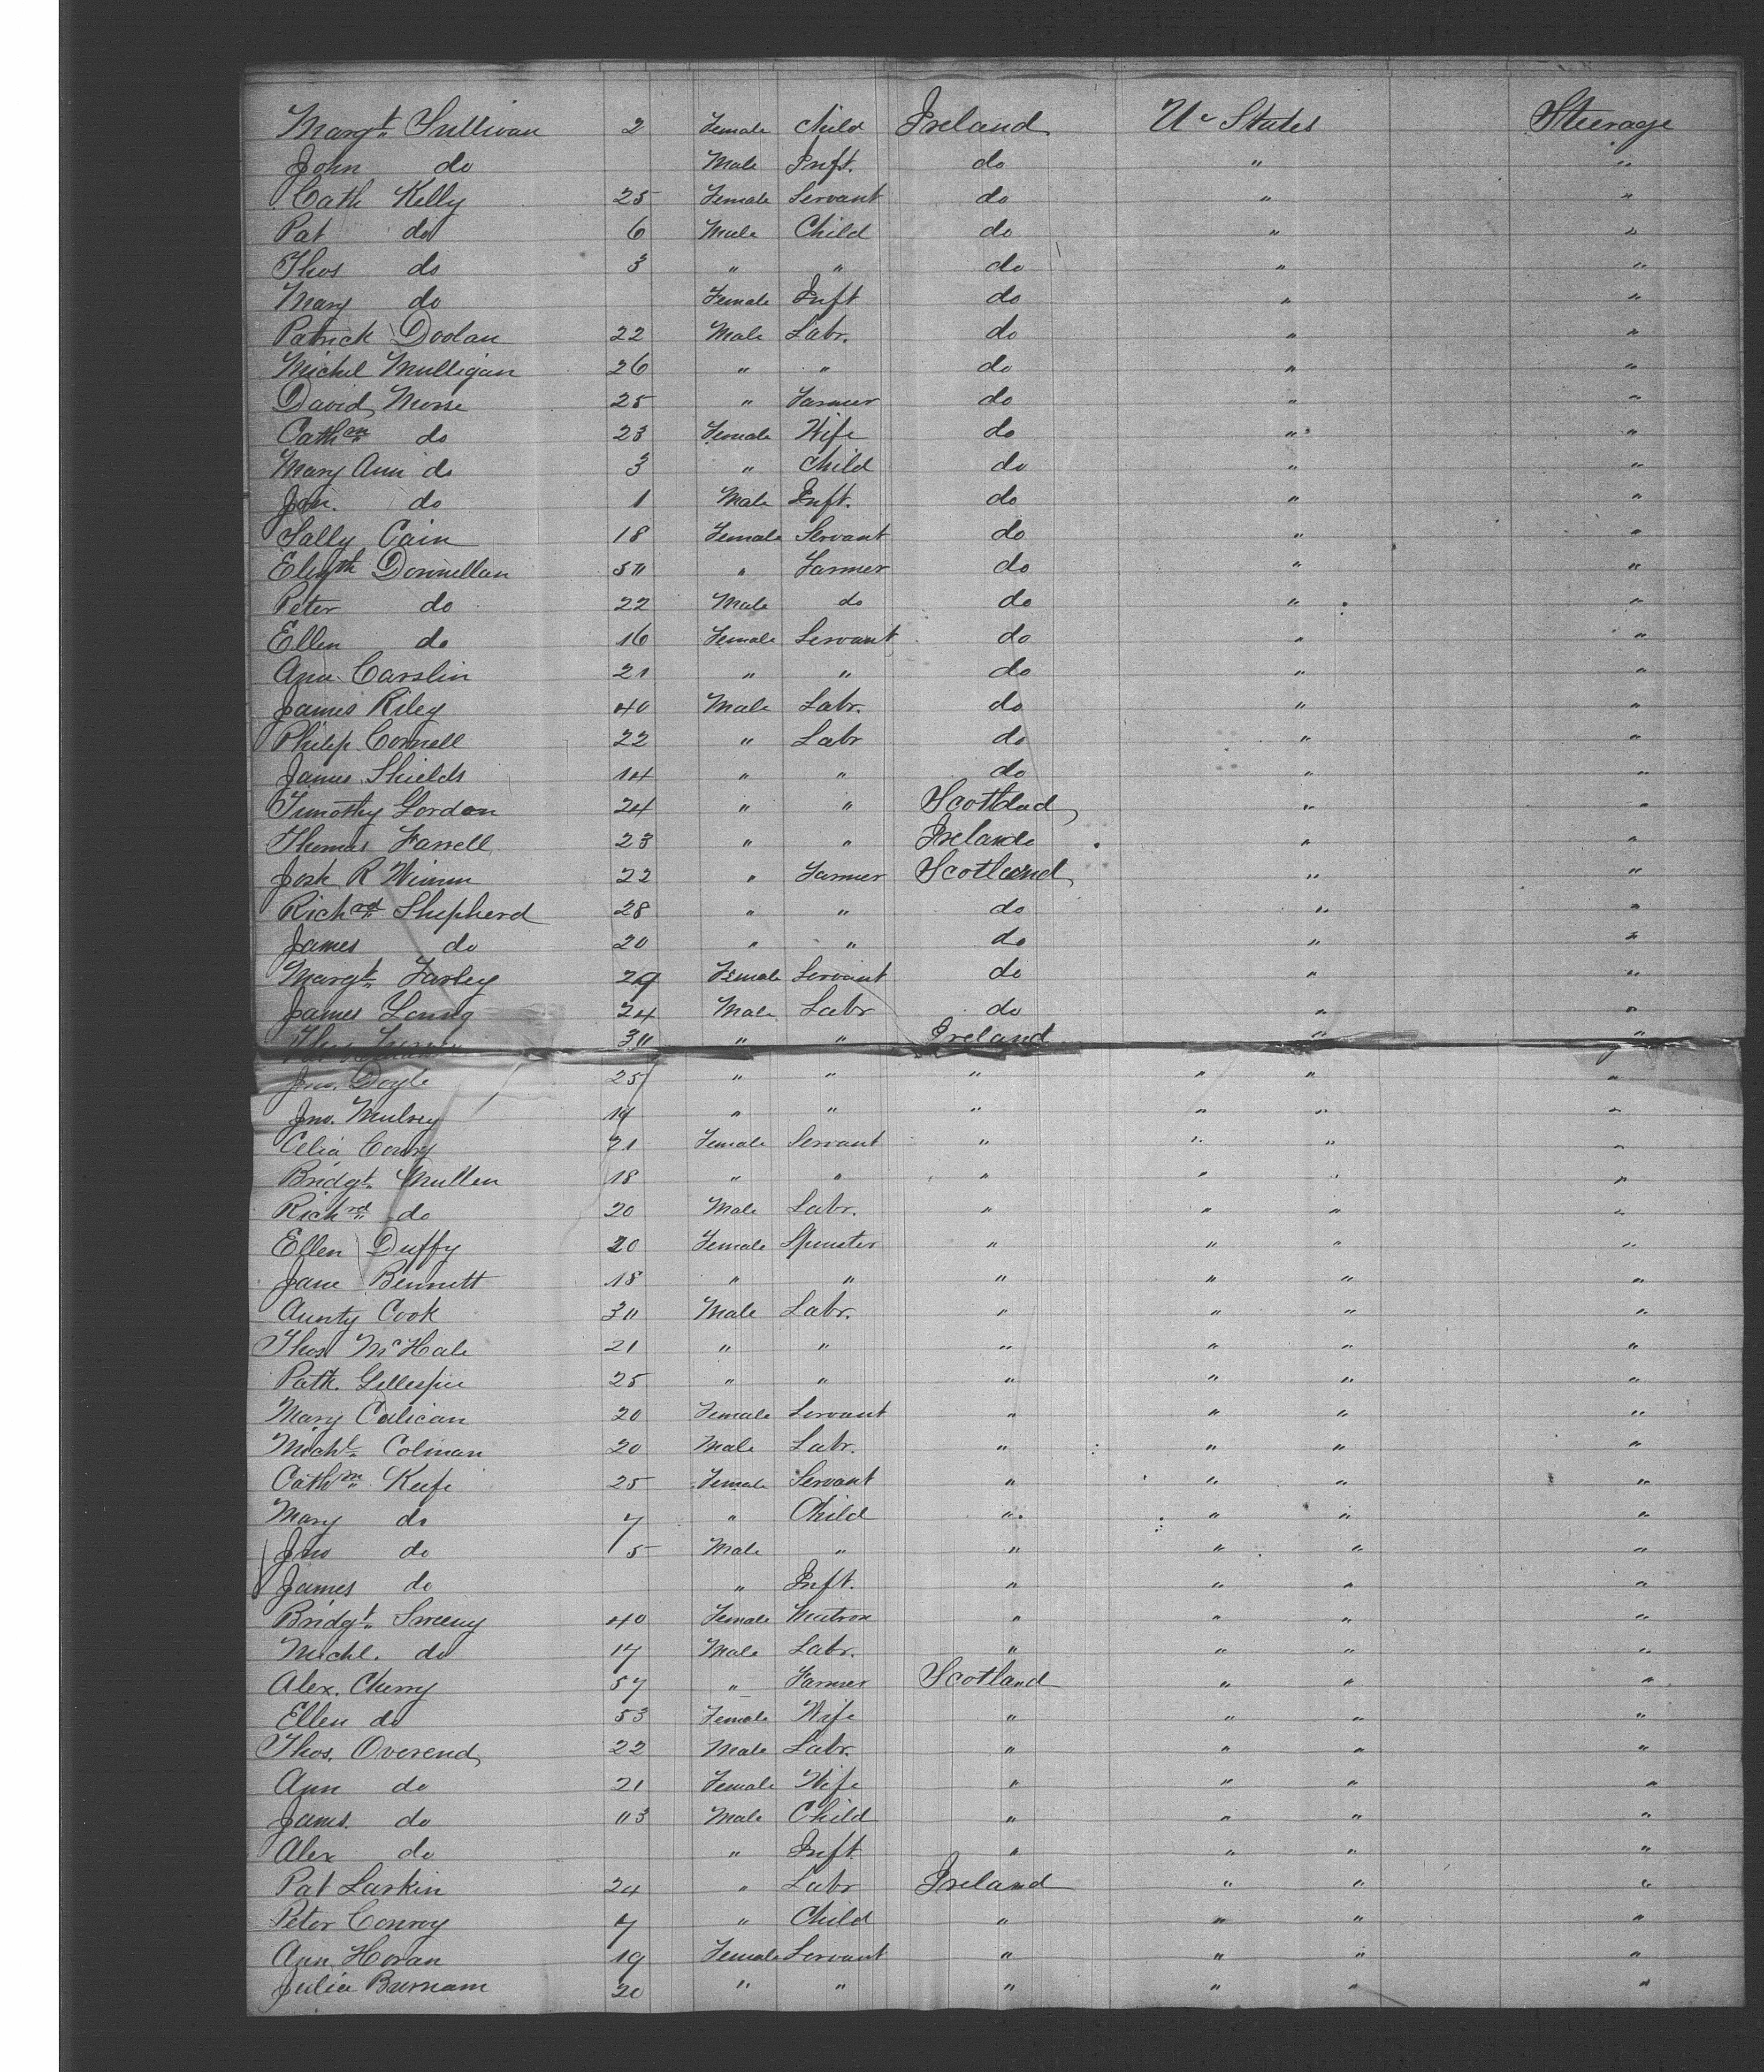 Margt. Sullivan 2 Female Child Ireland U. States Steerage
John do Male Inft. do " "
Cath Kelly 25 Female Servant do " "
Pat do 6 Male Child do " "
Thos do 3 " " do " "
Mary do Female Inft do " "
Patrick Doolan 22 Male Labr. do " "
Michel Mulligan 26 " " do " "
David Morse 25 " Farmer do " "
Cathne do 23 Female Wife do " "
Mary Ann do 3 " Child do " "
Jon. do 1 Male Inft. do " "
Sally Cain 18 Female Servant do " "
Elizth Donnellan 50 " Farmer do " "
Peter do 22 Male do do " "
Ellen do 16 Female Servant do " "
Ann Carslin 21 " " do " "
James Riley 40 Male Labr. do " "
Philip Connell 22 " Labr do " "
James Shields 14 " " do " "
Timothy Gordon 24 " " Scotland " "
Thomas Farrell 23 " " Ireland " "
Josh R 22 " Farmer Scotland " "
Richard Shepherd 28 " " do " "
James do 20 " " do " "
Margt. Farley 29 Female Servant do " "
James Young 24 Male Labr do " "
30 " " Ireland " "
Jno. Doyle 25 " " " " " "
Jno. Mulvey 19 " " " " " "
Celia Conry 21 Female Servant " " " "
Bridgt. Mullen 18 " " " " " "
Richrd do 20 Male Labr. " " " "
Ellen Duffy 20 Female Spinster " " " "
Jane Bennett 18 " " " " " "
Aunty Cook 30 Male Labr. " " " "
Thos McHale 21 " " " " " "
Patk. Gillespie 25 " " " " " "
Mary Calican 20 Female Servant " " " "
Michl. Colman 20 Male Labr. " " " "
Cathne Keefe 25 Female Servant " " " "
Mary do 7 " Child " " " "
Jno do 5 Male " " " " "
James do " Inft. " " " "
Bridgt. Sweeny 40 Female Matron " " " "
Michl. do 17 Male Labr. " " " "
Alex. Cherry 57 " Farmer Scotland " " "
Ellen do 53 Female Wife " " " "
Thos. Overend 22 Male Labr. " " " "
Ann do 21 Female Wife " " " "
James. do "3 Male Child " " " "
Alex do " Inft " " " "
Pat Larkin 24 " Labr Ireland " " "
Peter Conroy 7 " Child " " " "
Ann Horan 19 Female Servant " " " "
Julia Burnam 20 " " " " " "